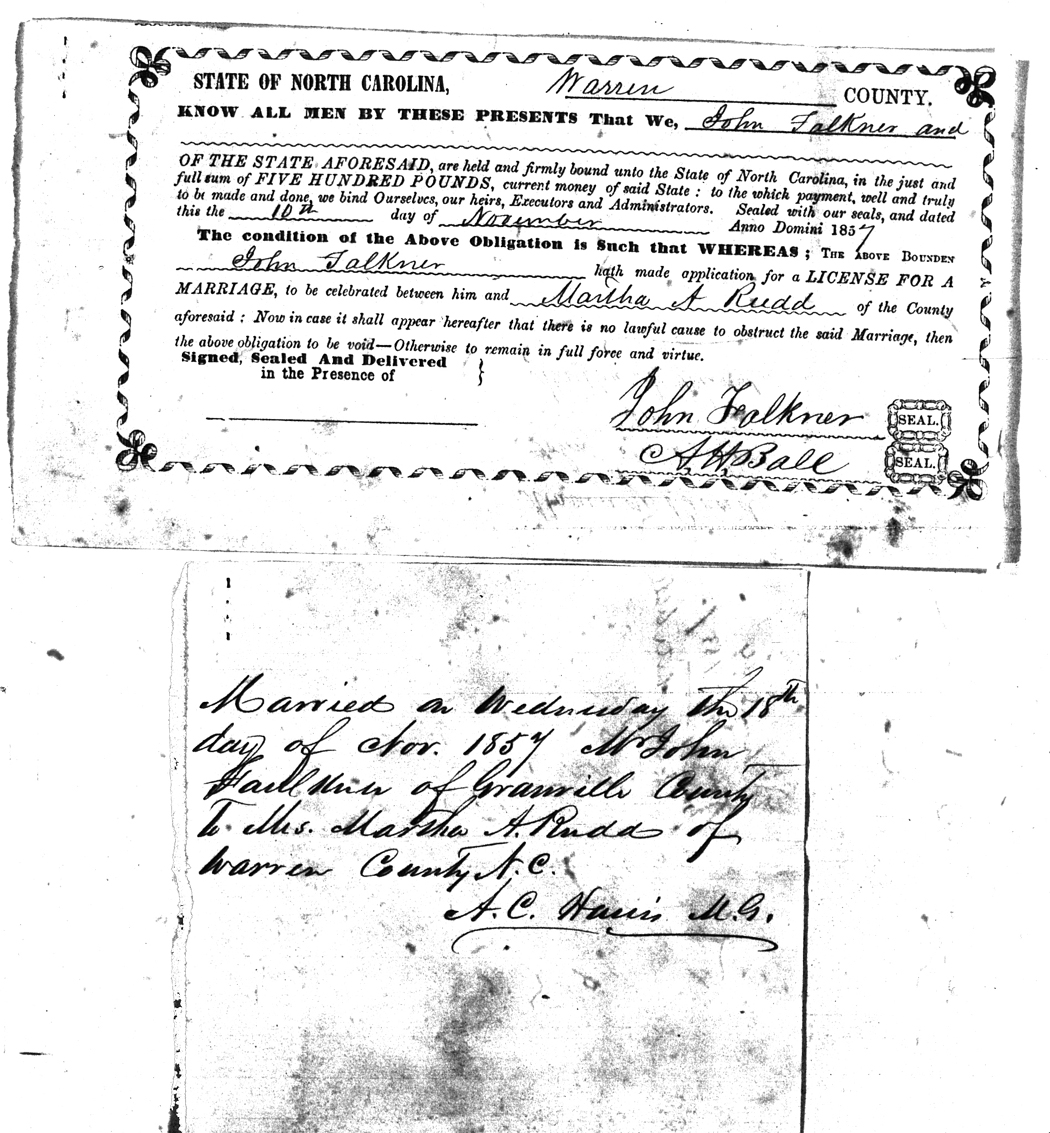 STATE OF NORTH CAROLINA, Warren COUNTY.
KNOW ALL MEN BY THESE PRESENTS That We, John Falkner and
OF THE STATE AFORESAID, are held and firmly bound unto the State of North Carolina, in the just and
full sum of FIVE HUNDRED POUNDS, current money of said State : to the which payment, well and truly
to be made and done, we bind Ourselves, our heirs, Executors and Administrators. Sealed with our seals, and dated
this the 10th day of November Anno Domini 1857
The condition of the Above Obligation is Such that WHEREAS ; THE ABOVE BOUNDEN
John Falkner hath made application for a LICENSE FOR A
MARRIAGE, to be celebrated between him and Martha A Rudd of the County
aforesaid : Now in case it shall appear hereafter that there is no lawful cause to obstruct the said Marriage, then
the above obligation to be void—Otherwise to remain in full force and virtue.
Signed, Sealed And Delivered
in the Presence of
John Falkner SEAL.
A H Ball SEAL.
Married on Wednesday the 18th
day of Nov. 1857 Mr John
Faulkner of Granville County
to Mrs. Martha A. Rudd of
Warren County N.C.
A. C. Harris M.G.